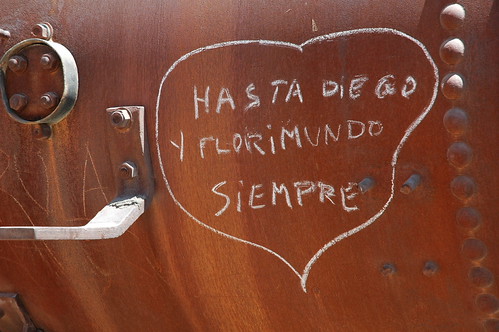 HASTA DIEGO
Y FLORIMUNDO
SIEMPRE